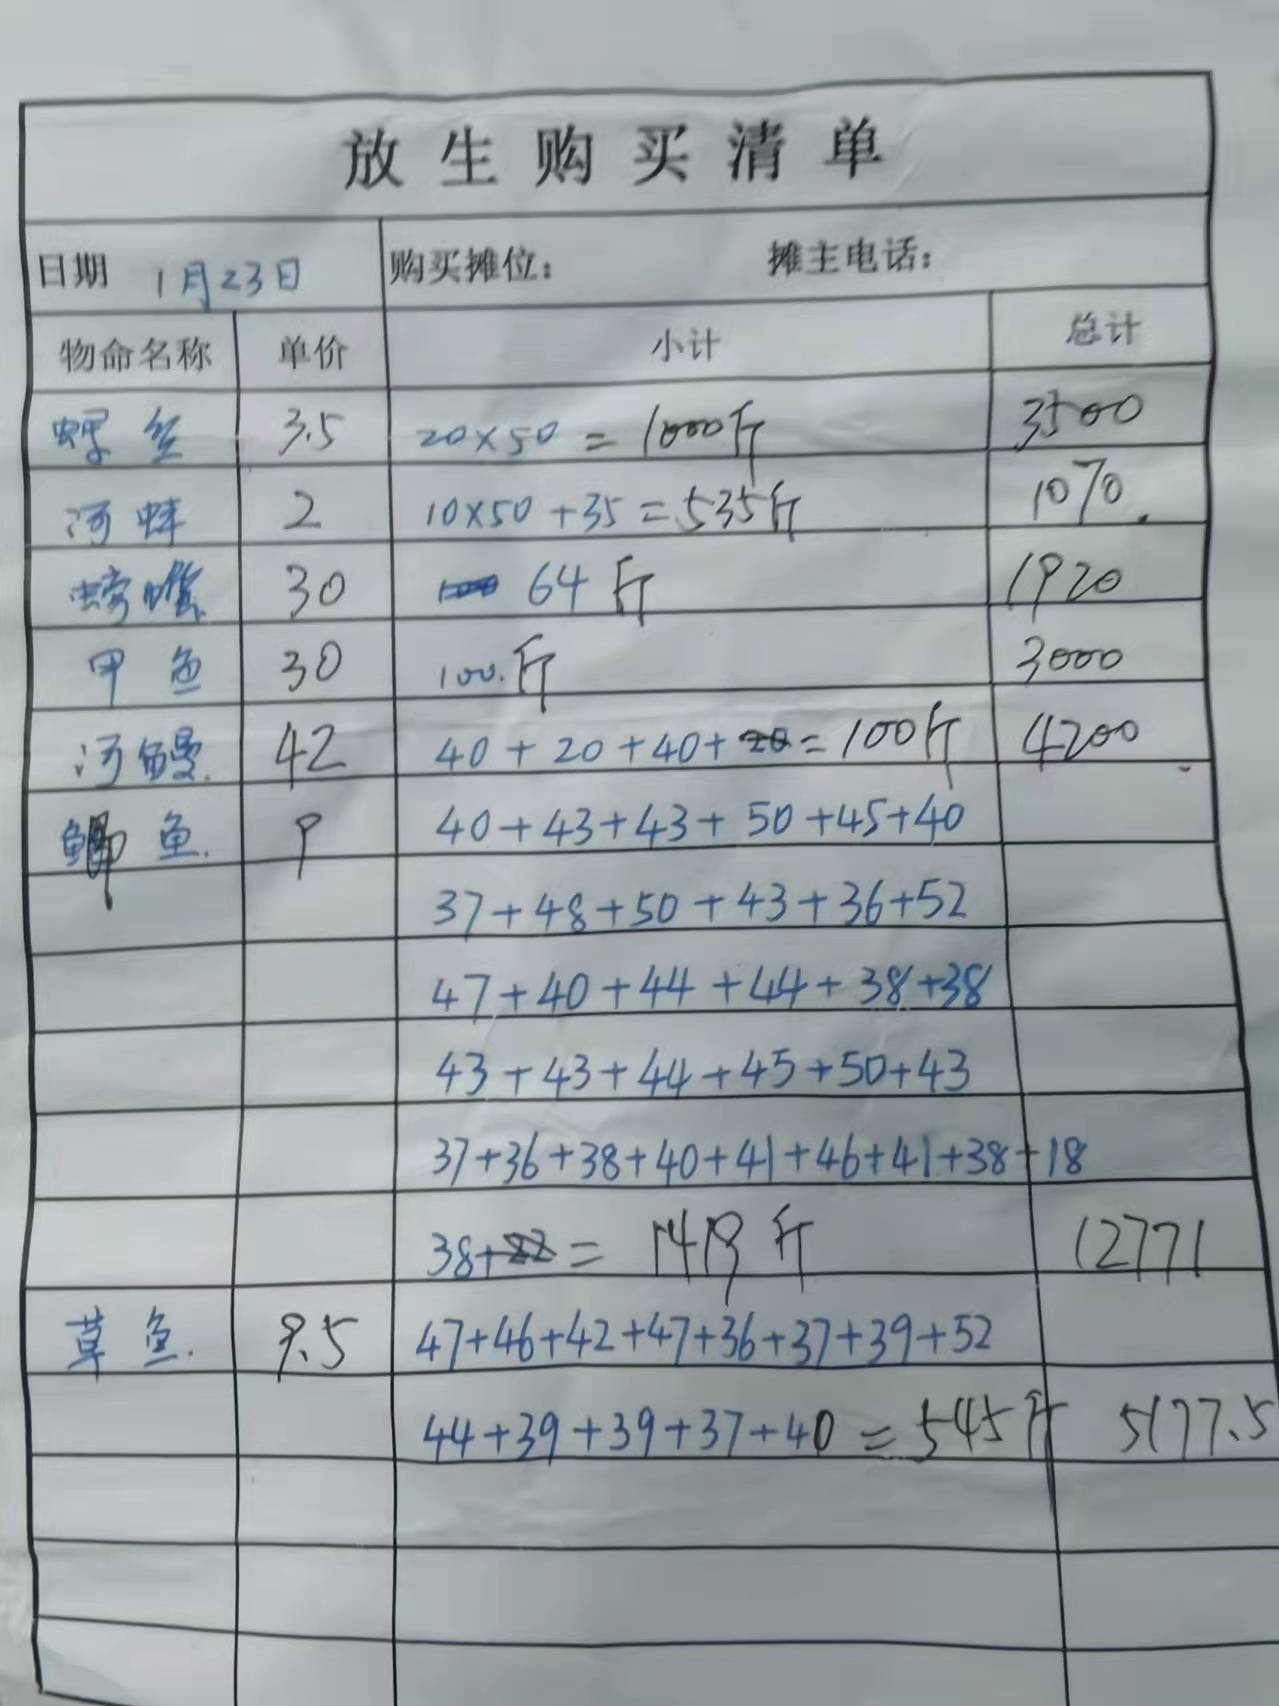 放生购买清单
日期 1月23日 购买摊位: 摊主电话:
物命名称 单价 小计 总计
螺丝 3.5 20×50=1000斤 3500
河蚌 2 10×50+35=535斤 1070.
螃蟹 30 64斤 1920
甲鱼 30 100.斤 3000
河鳗. 42 40+20+40+20=100斤 4200
鲫鱼. 9 40+43+43+50+45+40
37+48+50+43+36+52
47+40+44+44+38+38
43+43+44+45+50+43
37+36+38+40+41+46+41+38+18
38+22=1419斤 12771
草鱼. 9.5 47+46+42+47+36+37+39+52
44+39+39+37+40=545斤 5177.5